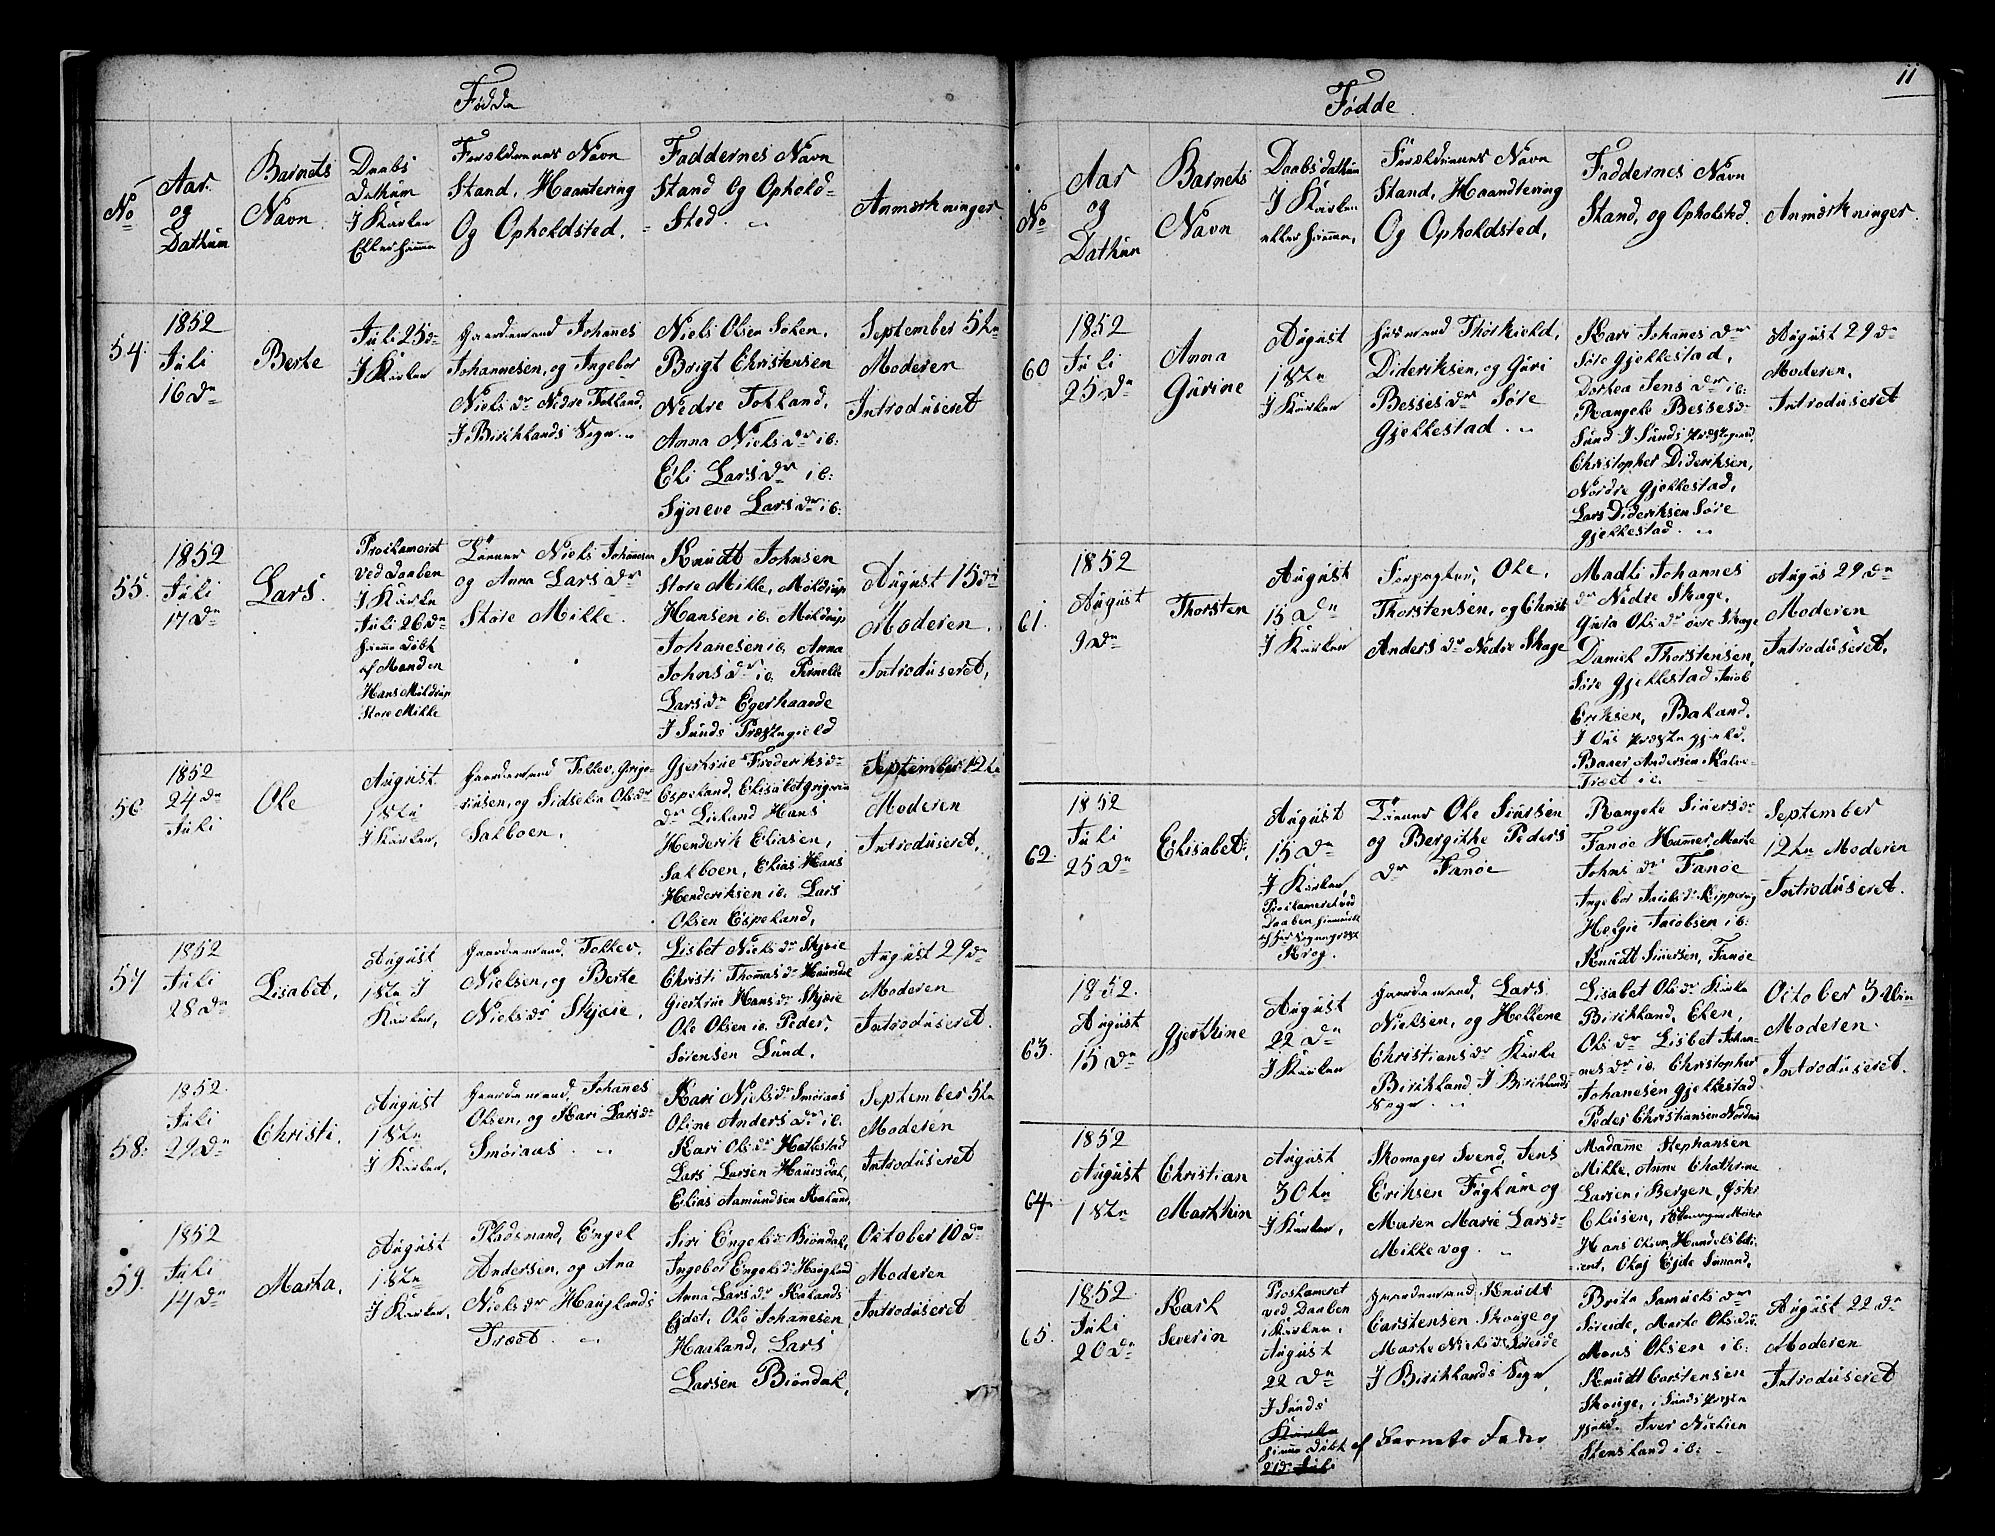 Fødde
No
Aar.
og
Dathum
Barnets
Navn.
Daabs
Dathum
I Kirken
Eller hiemme
Forældrenes Navn
Stand, Haantering
Og Opholdsted.
Faddernes Navn
Stand Og Ophold-
Sted.
Anmærkninger
54.
1852
Juli
16 de
Berte
Juli 25 de
I Kirken
Gaardemand Johanes
Johannesen, og Ingebor
Niels dr Nedre Tokland,
I Birchlands Sogn
Niels Olsen Solen,
Brigt Christensen
Nedre Tokland,
Anna Niels dr ib:
Eli Lars dr ib:
Syneve Lars dr ib:
September 5te
Moderen
Introduseret
55.
1852
Juli
17 de
Lars.
Proclameret
ved Daaben
I Kirken
Juli 26 de
hiemme døbt
af Manden
Hans Mildrup
Store Milde
Niels Johanesen
og Anna Lars dr
Store Milde.
Knudt Johnsen
Store Milde, Mildrup
Hansen ib. Mildrup
Johanesen ib, Anna
Johns dr ib. Pernelle
Lars dr Egerhaande
I Sunds Præstegield
August 15 de
Moderen.
Introduseret,
56
1852
24 de
Juli
Ole
August
18te
I Kirken,
Gaardemand Tollev Grigo-
riusen, og Sidselia Ols dr
Salboen.
Gjertrue Frederiks dr
Espeland, Elisabet Grigorius
dr Lieland Hans
Henderik Eliasen,
Salboen, Elias Hans
Henderiksen ib. Lars
Olsen Espeland,
September 12te
Moderen
Introduseret,
57
1852
Juli
28 de
Lisabet,
August
18te I
Kirken,
Gaardemand, Tollev
Nielsen, og Berte
Niels dr Skjæie,
Lisbet Niels dr Skjæie
Christi Thomas dr Hauesdal
Giertrue Hans dr Skjæie
Ole Olsen ib. Peder,
Sørensen Lund,
August 29 de
Moderen
Introduseret.
58:
1852
Juli
29 de
Christi.
August
18te
I Kirken,
Gaardemand, Johanes
Olsen, og Kari Lars dr
Smøraas
Kari Niels dr Smøraas
Oline Anders dr ib.
Kari Ols dr Hatlestad
Lars Larsen Hauesdal,
Elias Aamundsen Raland,
September 5te
Moderen
Introduseret
59.
1852
Juli
14 de
Marta.
August
18te
I Kirken,
Pladsmand, Engel
Andersen, og Ana
Niels dr Hauglands
Træet.
Siri Engels dr Biøndal,
Ingebor Engels dr Haugland
Anna Lars dr Ralands
Eidet, Ole Johanesen
Haukand, Lars
Larsen Biøndal,
October 10 de
Moderen
Introduseret
11
Fødde.
No
Aar
og
Dathum
Barnets
Navn
Daabsdathum
I Kirken
eller hiemme,
Forældrenes Navn
Stand, Haandtering
Og Opholdsted,
Faddernes Navn
Stand, og Opholsted.
Anmærkninger.
60
1852
Juli
25 de
Anna
Gurine
August
18te
I Kirken
Husmand Thorkield,
Dideriksen, og Guri
Besses dr Søre
Gjellestad.
Kari Johanes dr
Søre Gjellestad,
Dorthea Jens dr ib:
Rangele Besses dr
Sund I Sunds Præstegield,
Christopher Dideriksen,
Nordre Gjellestad,
Lars Dideriksen Søre
Gjellestad.
August 29 de
Moderen,
Introduseret
61.
1852
August
9 de
Thorsten
August
15 de
I Kirken
Forpagter, Ole,
Thorstensen, og Christi
Anders dr Nedre Skage
Madli Johannes
dr Nedre Skage,
Gura Ols dr øvre Skage
Daniel Thorstensen,
Søre Gjellestad Jacob
Eriksen, Bakand.
I Ous Præstegjeld.
Baaer Andersen Kalve-
Træet ib.
Augus 29 de
Moderen
Introduseret.
62.
1852
Juli
25 de
Elisabet.
August
15 de
I Kirken,
Proclameret ved
Daaben hiemmedøbt
Sognepræst
Krog.
Ole Siursen
og Bergitthe Peders
dr Fanøe
Rangele Siuers dr
Fanøe Hammer, Marte
Johns dr Fanøe
Ingebor Jacobs dr Klippering
Helgie Jacobsen ib:
Knudt Siuersen, Fanøe
September
12te Moderen
Introduseret.
63.
1852.
August
15 de
Gjerthine
August
22 de
I Kirken
Gaardemand, Lars
Nielsen, og Hellene
Christians dr Kirke
Birchland I Birchlands
Sogn.
Lisabet Ols dr Kirke
Birchland, Elen,
Ols dr Lisbet Johan-
nes dr ib. Christopher
Johanesen Gjellestad
Peder Christiansen Nordnæs
October 3 die
Moderen.
Introduseret.
64.
1852
August
18te
Christian
Marthin
August
30te
I Kirken,
Skomager Svend, Jens
Eriksen Fuglum og
Maren Marie Lars dr
Mildevog.
Madamme Stephansen
Milde, Anne Chathrine
Larsen i Bergen,
Elusen,
Hans Olsen, Handelsbeti-
ent, Oluf Eyde Sømand,
65.
1852.
Juli
20 de
Karl
Severin
Proclameret
ved Daaben
i Kirken,
August
22 de
I Sunds
Kirke
hiemme døbt af Barnets Fader
21 de Juli
Gaardemand, Knudt
Carstensen Skouge og
Marte Niels dr Søreide
I Birchlands Sogn,
Brita Samuels dr
Søreide, Marte Ols dr
Mons Olsen ib:
Knudt Carstensen
Skouge, i Sunds Præste
gjeld. Iver Nielsen
Stensland ib:
August 22 de
Moderen
Introduseret